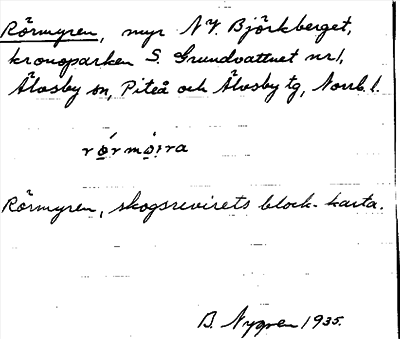 Rörmyren, myr NV. Björkberget,
kronoparken S. Grundvattnet nr 1,
Älvsby sn, Piteå och Älvsby tg, Norrb. l.
Rörmyren, skogsrevirets block-karta.
B. Nygren 1935.